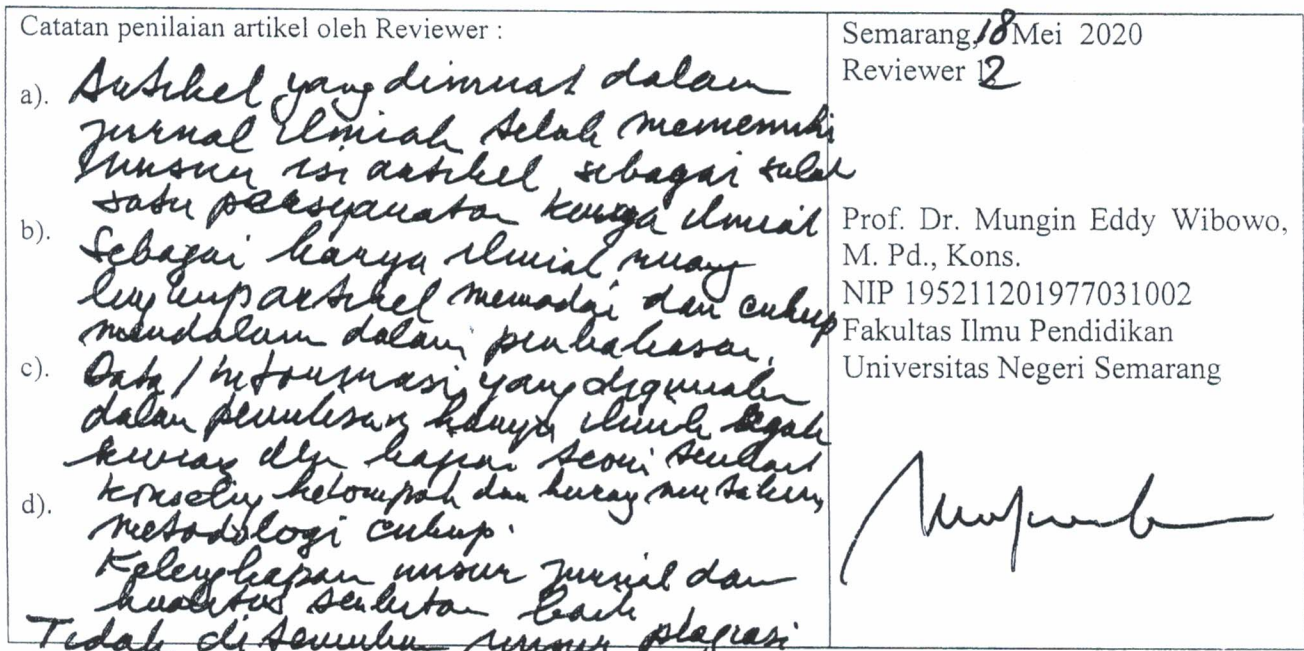 Catatan penilaian artikel oleh Reviewer :
a). Artikel yang dimuat dalam
jurnal ilmiah telah memenuhi
unsur isi artikel sebagai salah
satu persyaratan karya ilmiah
b). Sebagai karya ilmiah ruang
lingkup artikel memadai dan cukup
mendalam dalam pembahasan.
c). Data/informasi yang digunakan
dalam penulisan karya ilmiah agak
kurang dlm kajian teori
d). konseling kelompok dan kurang mutakhir,
metodologi cukup.
Kelengkapan unsur jurnal dan
kualitas terbitan baik
Tidak ditemukan unsur plagiasi
Semarang, 18 Mei 2020
Reviewer 2
Prof. Dr. Mungin Eddy Wibowo,
M. Pd., Kons.
NIP 195211201977031002
Fakultas Ilmu Pendidikan
Universitas Negeri Semarang